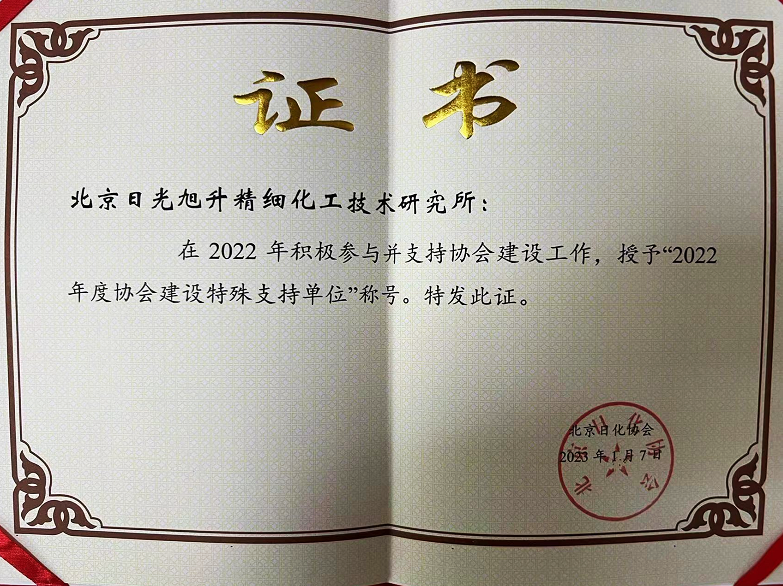 证书
北京日光旭升精细化工技术研究所：
在 2022 年积极参与并支持协会建设工作，授予“2022
年度协会建设特殊支持单位”称号。特发此证。
北京日化协会
2023 年 1 月 7 日
北京日化协会